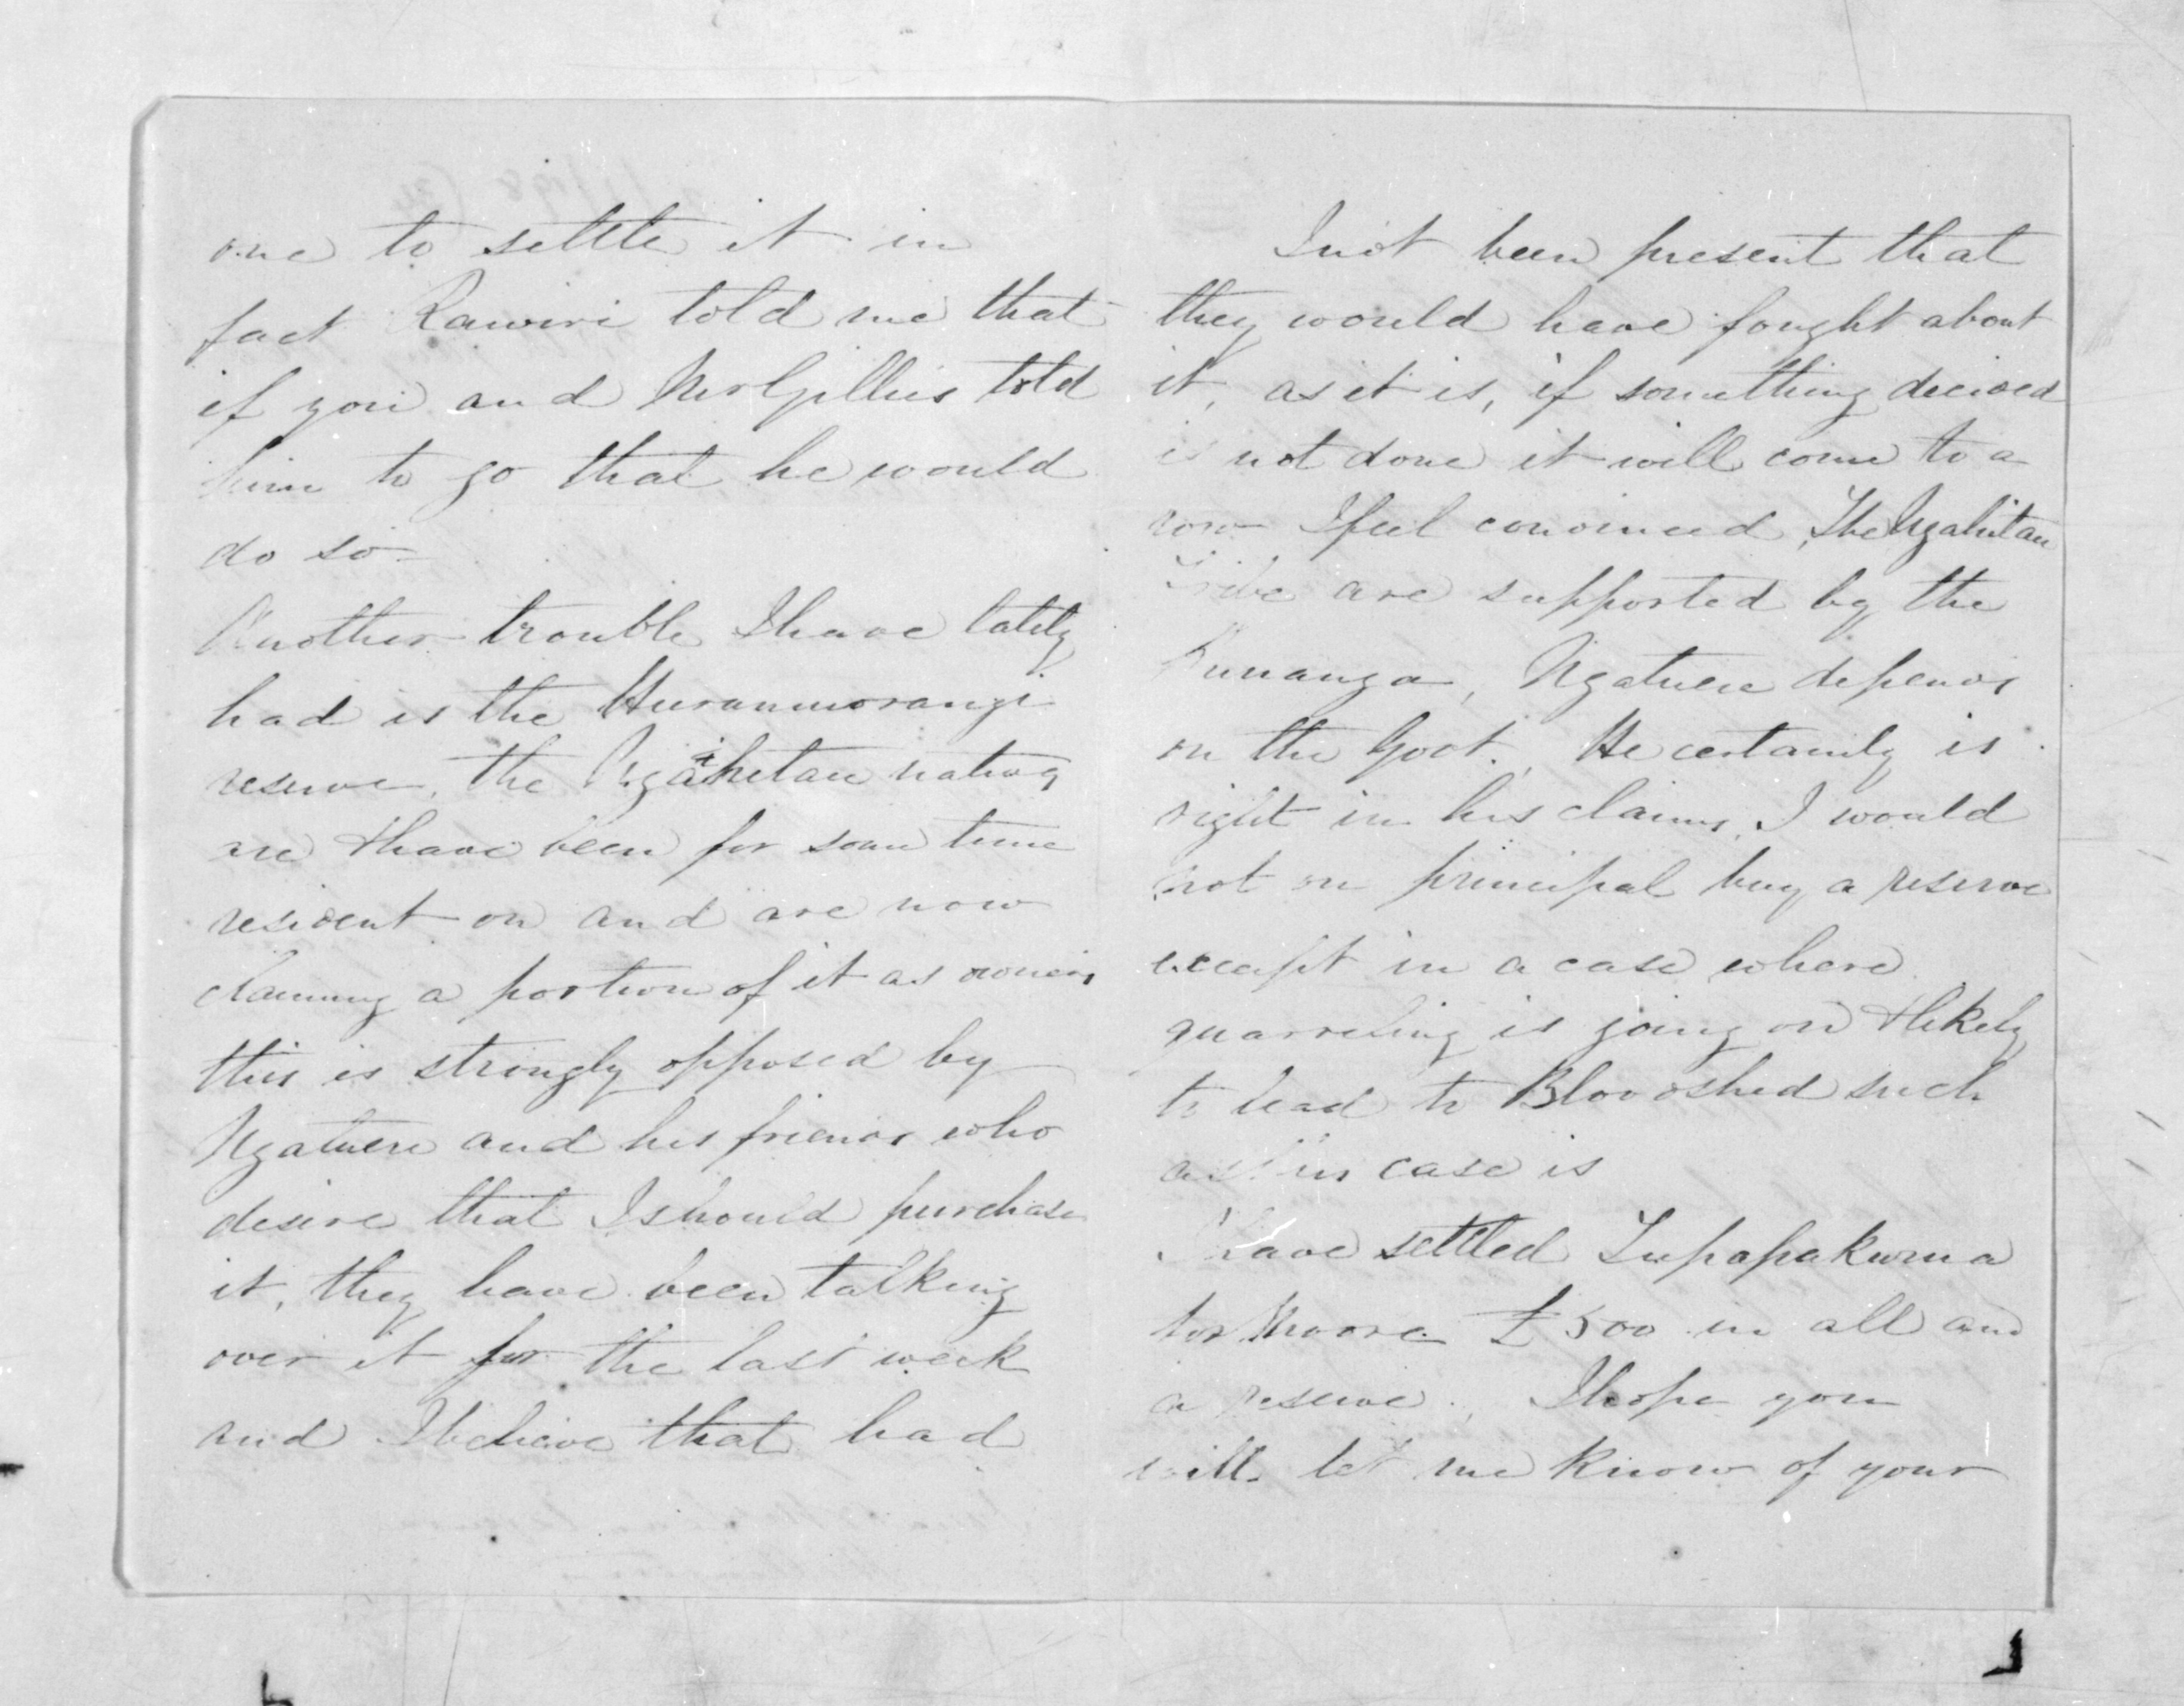 one to settle it in
fact Rawiri told me that
if you and Mr Gillies told
him to go that he would
do so
Another trouble I have lately
had is the Huranuiorangi
reserve, the Ngatihitau natives
are & have been for some time
resident on and are now
claiming a portion of it as owners
this is strongly opposed by
Ngatuere and his friends who
desire that I should purchase
it, they have been talking
over it for the last week
and I believe that had
I not been present that
they would have fought about
it, as it is, if something decided
is not done it will come to a
row I feel convinced, The Ngahitau
Tribe are supported by the
Runanga, Ngatuere depends
on the Govt. He certainly is
right in his claims, I would
not on principal buy a reserve
except in a case where
quarreling is going on & likely
to lead to Bloodshed such
as this case is
I have settled Tupapakurua
for Moore £500 in all and
a reserve. I hope you
will let me know of your